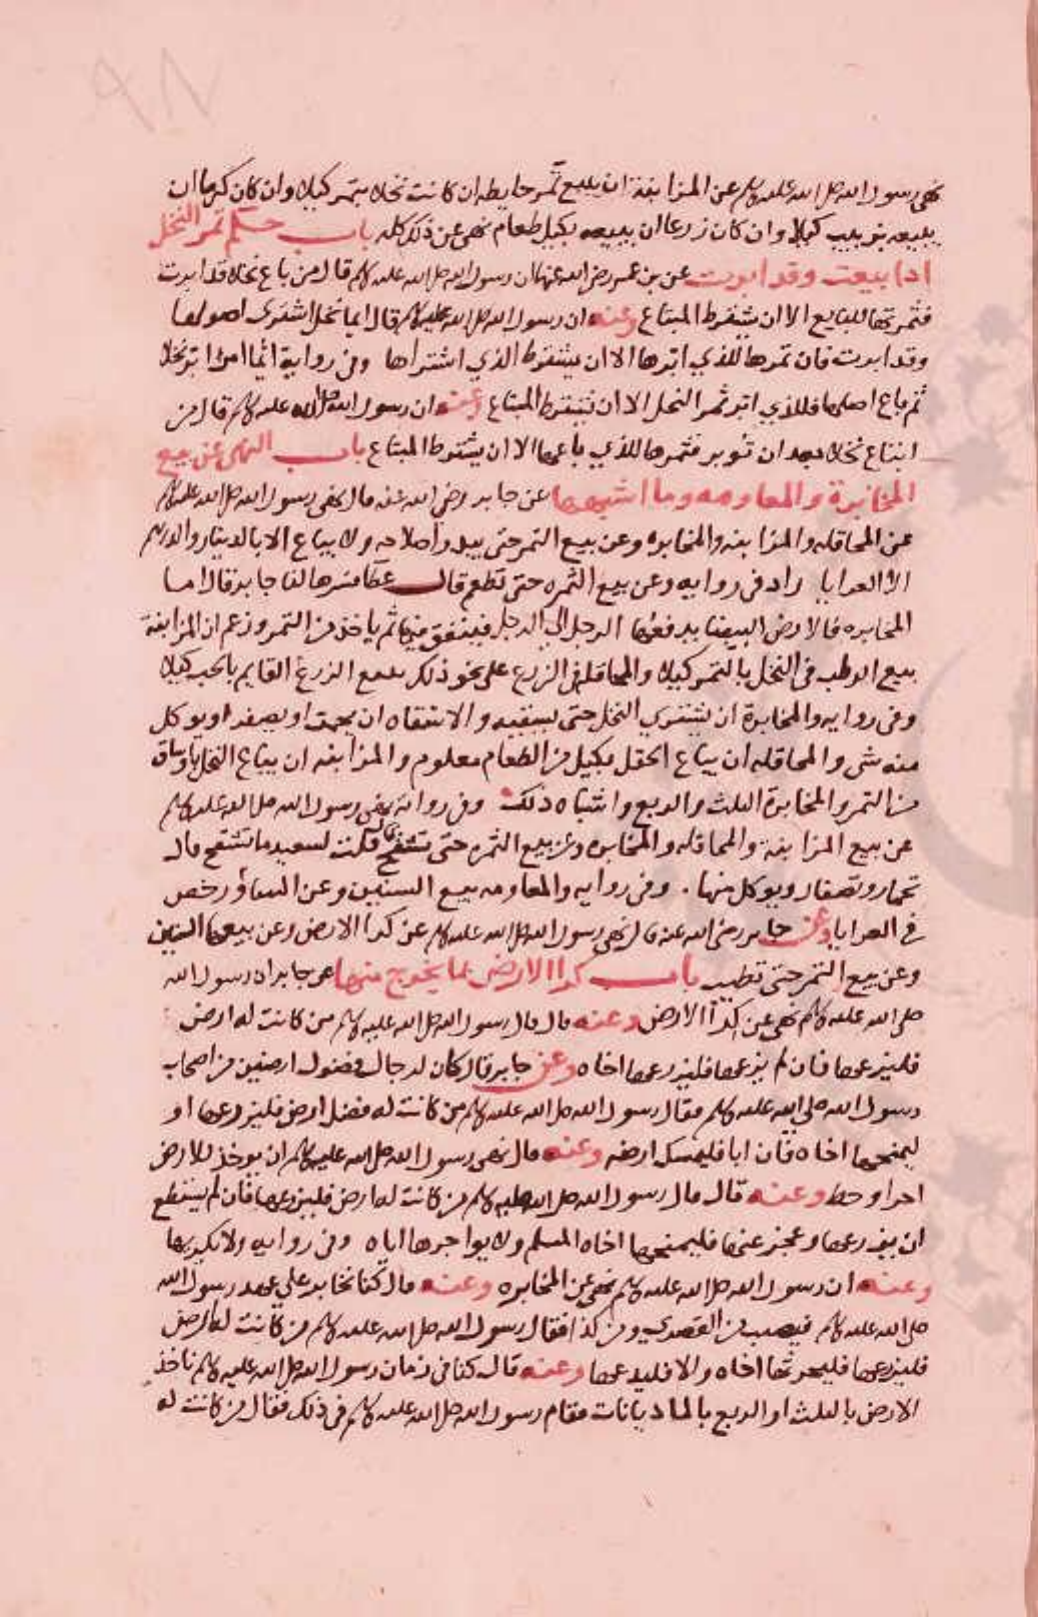 ٩٨
نهى رسول الله صلى الله عليه وسلم عن المزابنة ان يبيع ثمر حايطه ان كانت نخلا بتمر كيلا وان كان كرما ان
يبيعه بزبيب كيلا وان كان زرعا ان يبيعه بكيل طعام نهى عن ذلك كله باب حكم ثمر النخل
اذا بيعت وقد ابرت عن بن عمر رضي الله عنهما ان رسول الله صلى الله عليه وسلم قال من باع نخلا قد ابرت
فثمرتها للبايع الا ان يشترط المبتاع وعنه ان رسول الله صلى الله عليه وسلم قال ايما نخل اشترى اصولها
وقد ابرت فان ثمرها للذي ابرها الا ان يشترط الذي اشتراها وفي رواية ايما امرا ابر نخلا
ثم باع اصلها فللذي ابر ثمر النخل الا ان يشترط المبتاع وعنه ان رسول الله صلى الله عليه وسلم قال من
ابتاع نخلا بعد ان توبر فثمرها للذي باعها الا ان يشترط المبتاع باب النهي عن بيع
المخابرة والمعاومه وما اشبهها عن جابر رضي الله عنه قال نهى رسول الله صلى الله عليه وسلم
عن المحاقله والمزابنه والمخابره وعن بيع الثمر حتى يبدو اصلاحه ولا يباع الا بالدينار والدرهم
الا العرايا زاد في روايه وعن بيع الثمره حتى تطعم قال عطا فسرها لنا جابر قال اما
المخابره فالارض البيضا يدفعها الرجل الى الرجل فينفق فيها ثم ياخذ من الثمر وزعم ان المزابنة
بيع الرطب في النخل بالتمر كيلا والمحاقله في الزرع على نحو ذلك يبيع الزرع القايم بالحب كيلا
وفي روايه والمخابرة ان يشتري النخل حتى يشقيه والاشقاه ان يحمر او يصفر او يوكل
منه شي والمحاقله ان يباع الحقل بكيل من الطعام معلوم والمزابنه ان يباع النخل باوساق
من التمر والمخابرة الثلث والربع واشباه ذلك وفي روايه نهى رسول الله صلى الله عليه وسلم
عن بيع المزابنة والمحاقله والمخابره وعن بيع الثمره حتى تشقح قال قلت لسعيد ما تشقح قال
تحمار وتصفار ويوكل منها . وفي روايه والمعاومه بيع السنين وعن الثنيا ورخص
في العرايا وعن جابر رضي الله عنه قال نهى رسول الله صلى الله عليه وسلم عن كرا الارض وعن بيعها السنين
وعن بيع الثمر حتى تطيب باب كرا الارض بما يخرج منها عن جابر ان رسول الله
صلى الله عليه وسلم نهى عن كرا الارض وعنه قال قال رسول الله صلى الله عليه وسلم من كانت له ارض
فليزرعها فان لم يزرعها فليزرعها اخاه وعن جابر قال كان لرجال فضول ارضين من اصحاب
رسول الله صلى الله عليه وسلم فقال رسول الله صلى الله عليه وسلم من كانت له فضل ارض فليزرعها او
ليمنحها اخاه فان ابا فليمسك ارضه وعنه قال نهى رسول الله صلى الله عليه وسلم ان يوخذ للارض
اجرا وحظ وعنه قال قال رسول الله صلى الله عليه وسلم من كانت له ارض فليزرعها فان لم يستطع
ان يزرعها وعجز عنها فليمنحها اخاه المسلم ولا يواجرها اياه وفي روايه ولا يكريها
وعنه ان رسول الله صلى الله عليه وسلم نهى عن المخابره وعنه قال كنا نخابر على عهد رسول الله
صلى الله عليه وسلم فنصيب من القصري ومن كذا فقال رسول الله صلى الله عليه وسلم من كانت له ارض
فليزرعها فليحرثها اخاه والا فليدعها وعنه قال كنا في زمان رسول الله صلى الله عليه وسلم ناخذ
الارض بالثلث او الربع بالماذيانات فقام رسول الله صلى الله عليه وسلم في ذلك فقال من كانت له